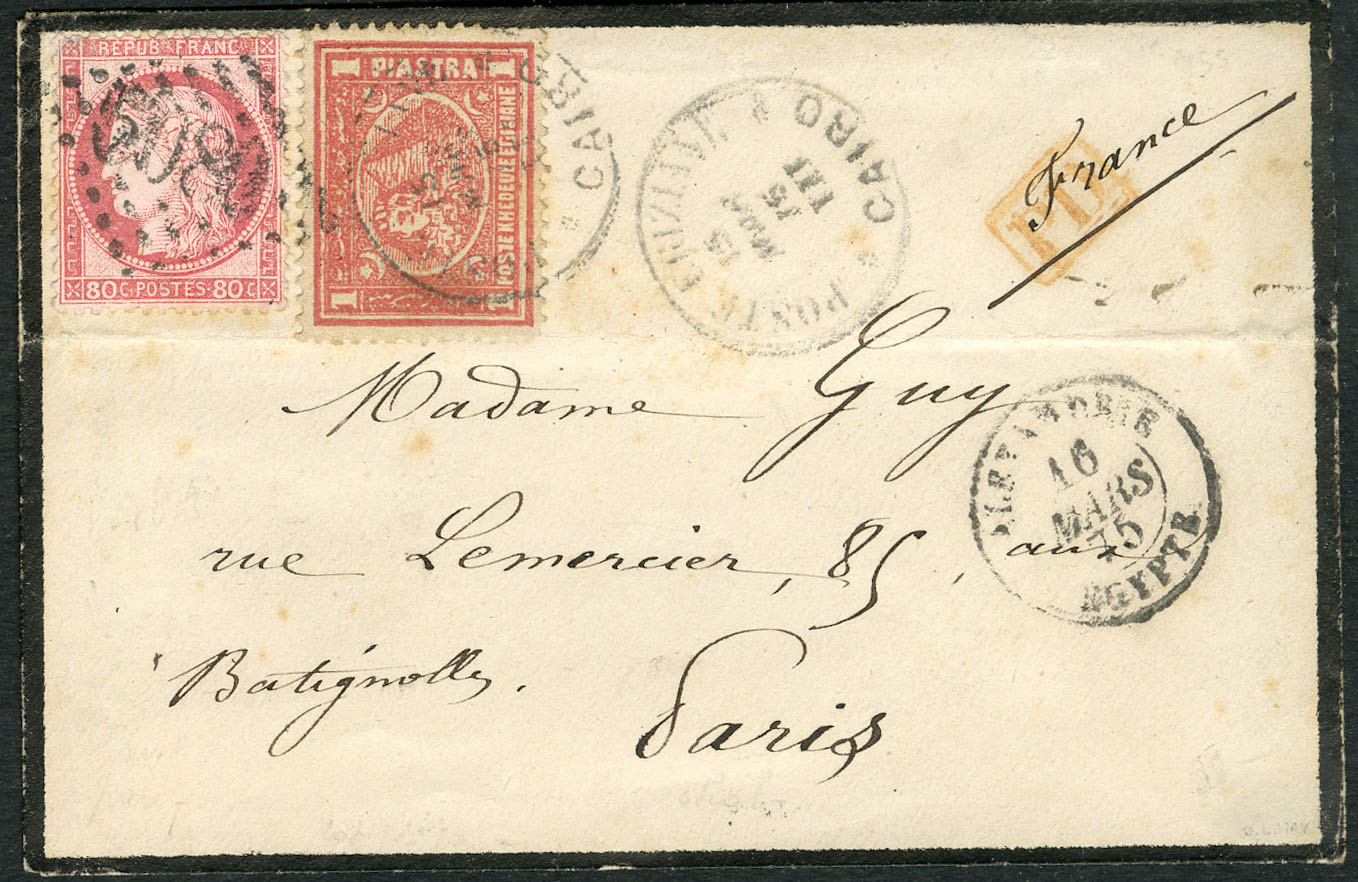 REPUB FRANC
5080
80C·POSTES·80C
1 PIASTRA 1
POSTE KHEDEUIE EGIZIANE
1 1
CAIRO
POSTE EGIZIANE
CAIRO
15
MAR
75
T III
PD
France
Madame Guy
rue Lemercier, 85, aux
Batignolles.
Paris
ALEXANDRIE
16
MARS
75
EGYPTE